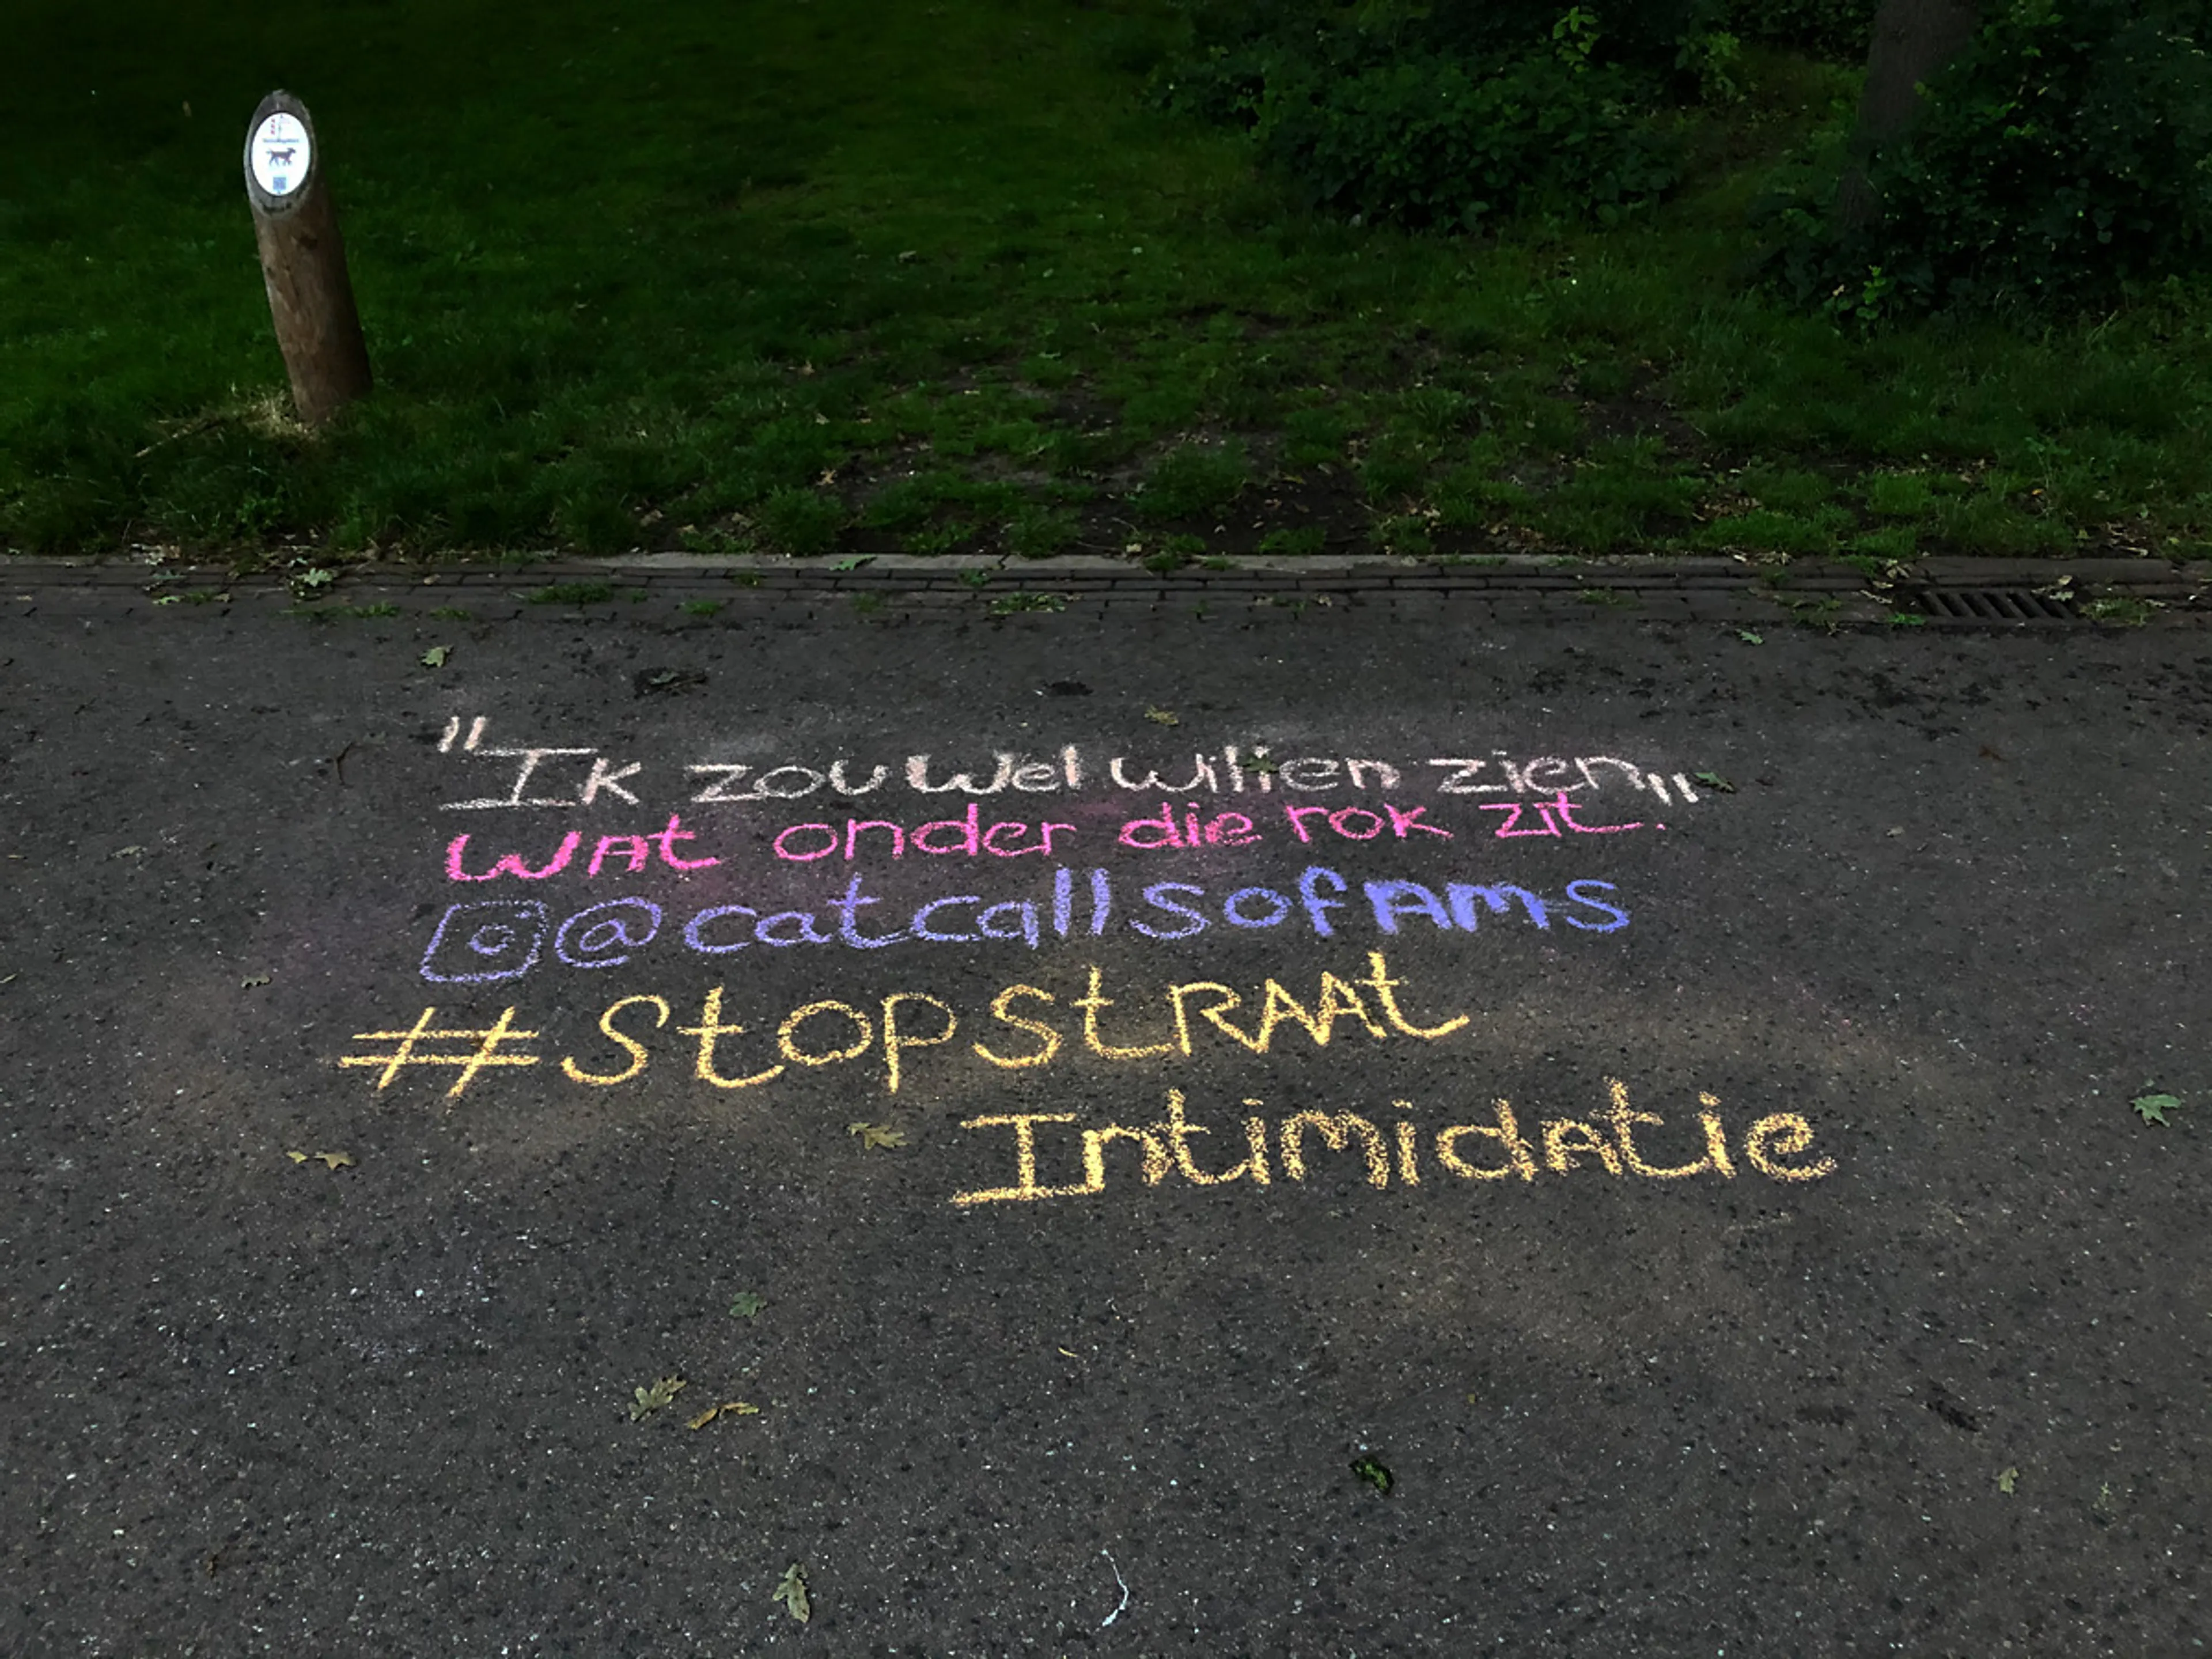 "Ik zou wel willen zien"
wat onder die rok zit.
@catcallsofams
#StopStRAAt
Intimidatie